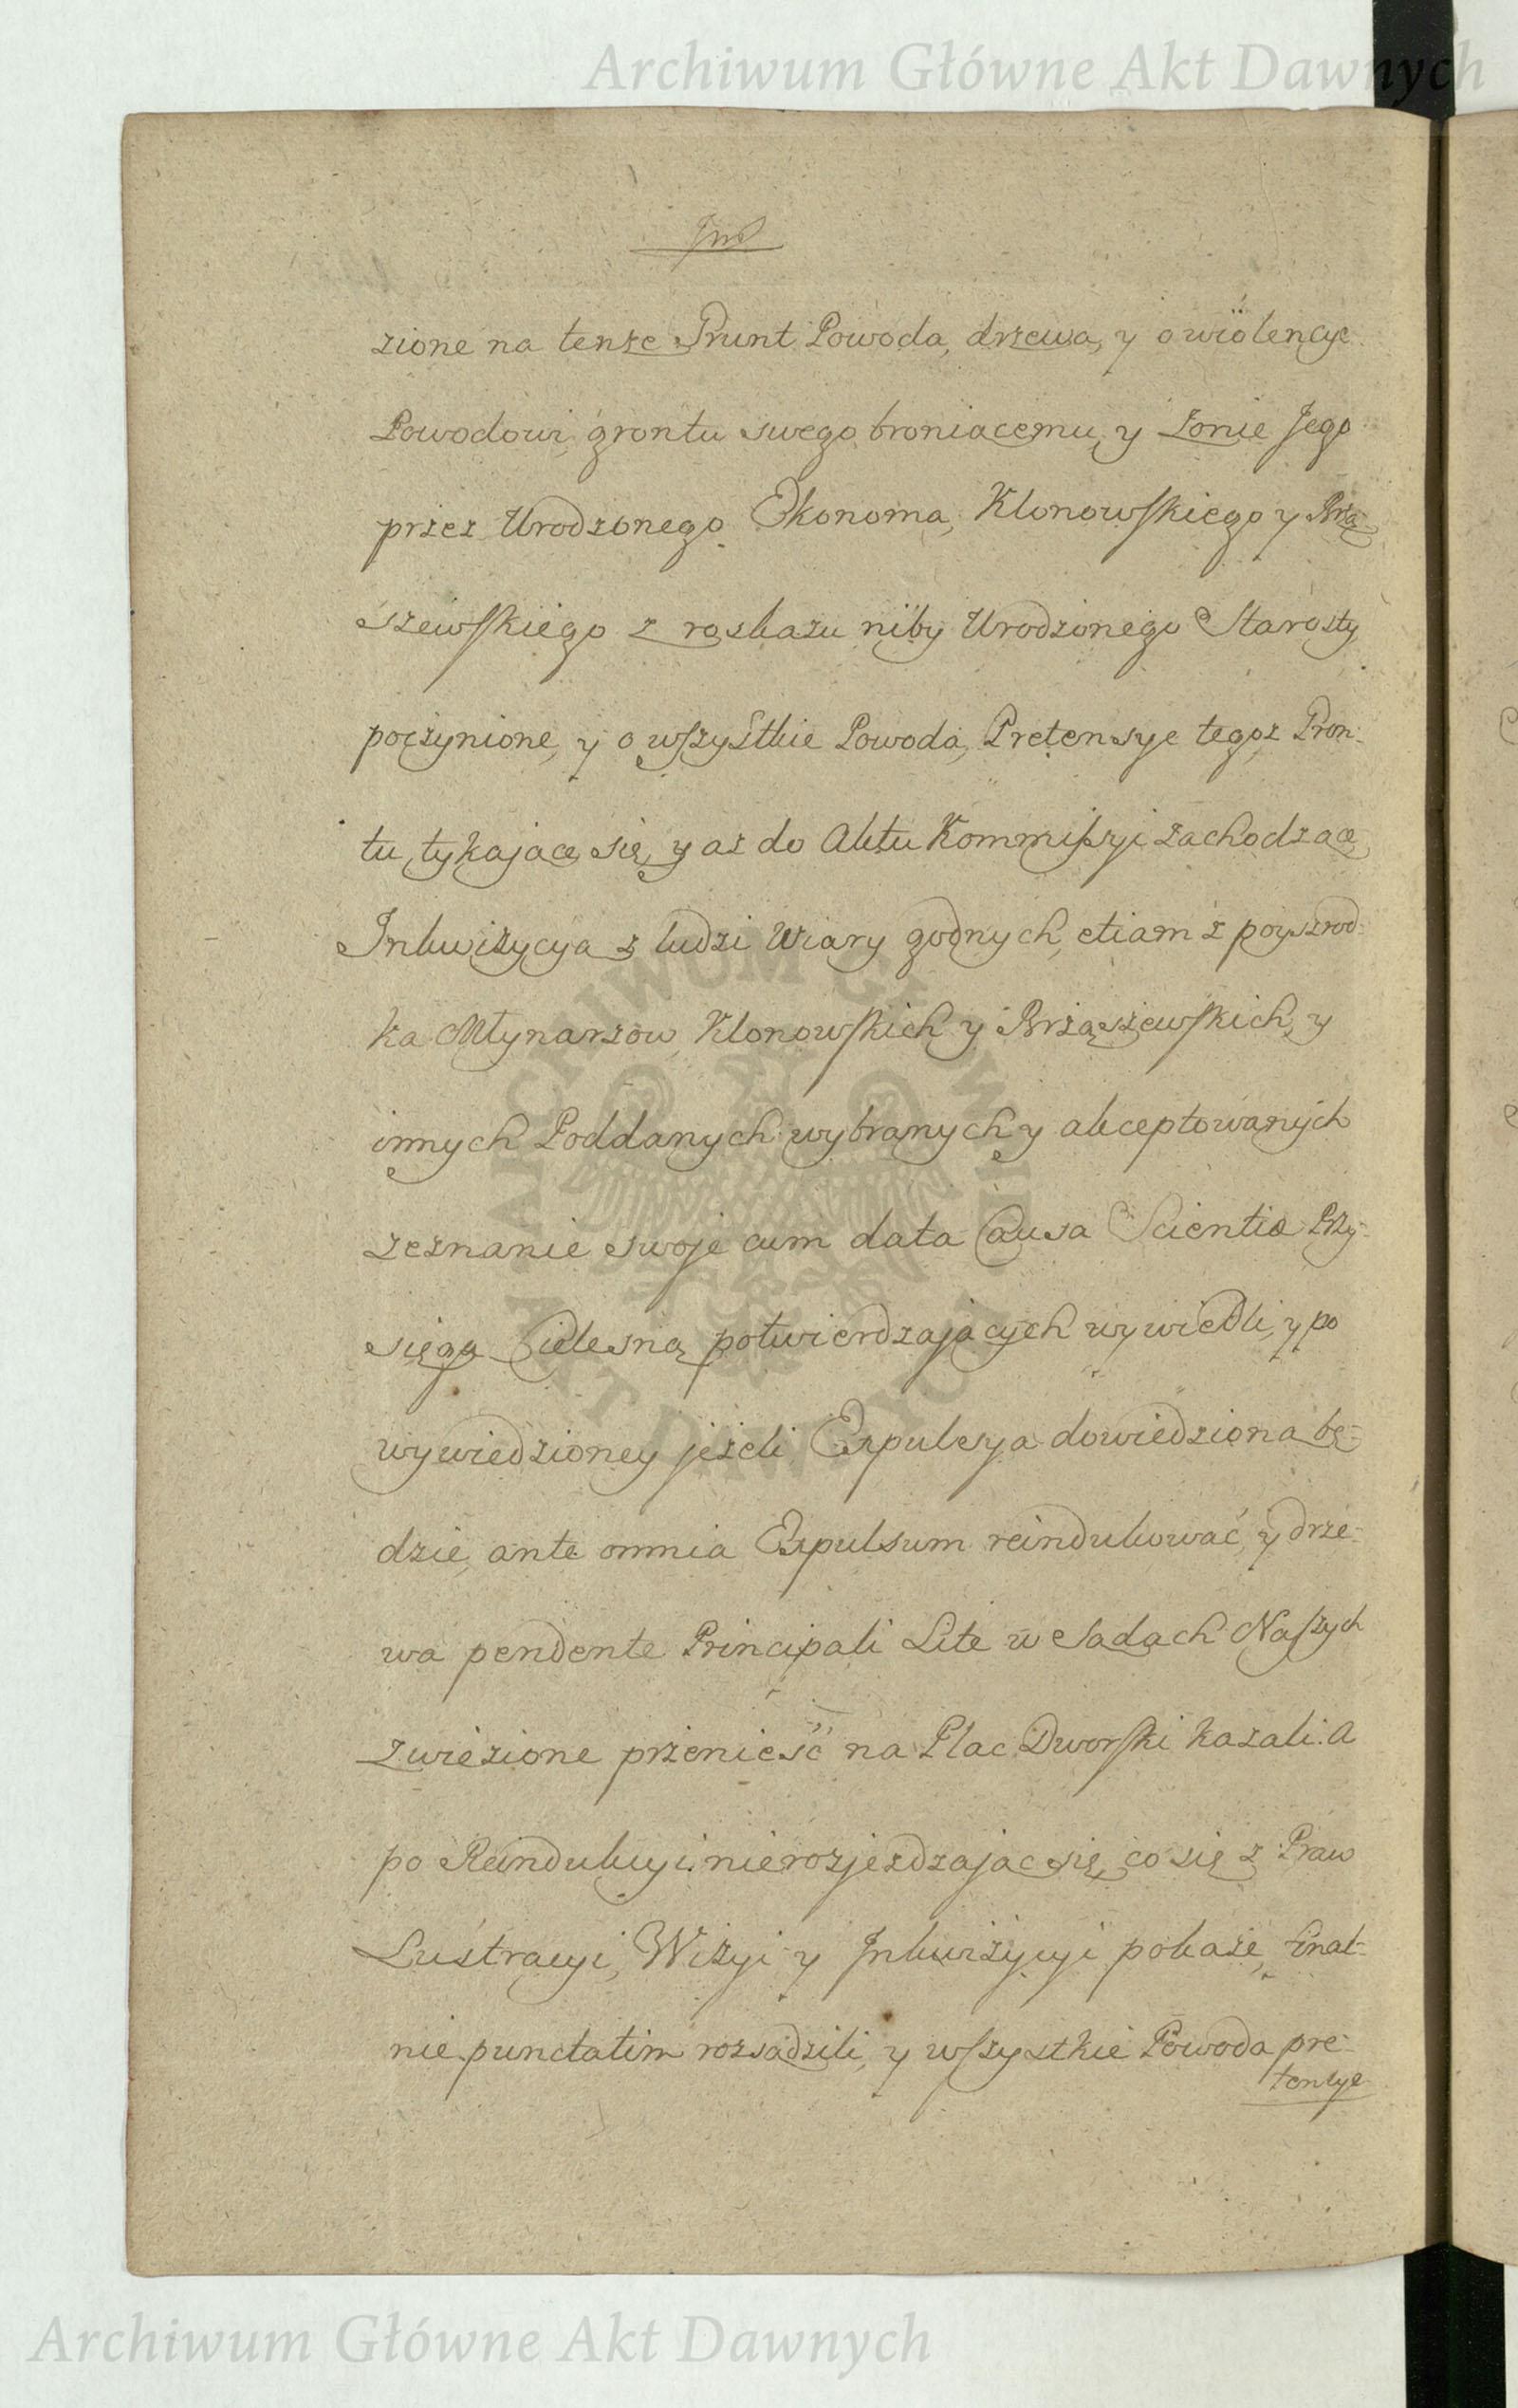 Archiwum Główne Akt Dawnych
zione na tenże Grunt Powoda, drzewa, y o wiolencye
Powodowi, grontu swego broniacemu, y Zonie Jego
przez Urodzonego Ekonoma, Klonowskiego y Brzą-
szewskiego z roskazu niby Urodzonego Starosty
poczynione, y o wszystkie Powoda, Pretensye tegoż Gron-
tu, tykające się, y aż do Aktu Kommissyi zachodzące
Inkwizycya z ludzi Wiary godnych, etiam z poyszrod-
ka Młynarzow Klonowskich y Brząszewskich, y
innych Poddanych wybranych y akceptowanych
zeznanie swoje cum data Causa Scientia Przy-
sięgą Cielesną potwierdzających wywiedli, y po
wywiedzioney jeżeli Expulsya dowiedziona bę-
dzie, ante omnia Expulsum reindukować, y drze-
wa pendente Principali Lite w Sądach Naszych
zwiezione przenieść na Plac Dworski kazali. A
po Reindukcyi nierozjeżdzając się, co się z Praw
Lustracyi, Wizyi y Inkwizycyi pokaże, final-
nie punctatim rozsądzili, y wszystkie Powoda pre-
tensye
ARCHIWUM GŁÓWNE
AKT DAWNYCH
Archiwum Główne Akt Dawnych